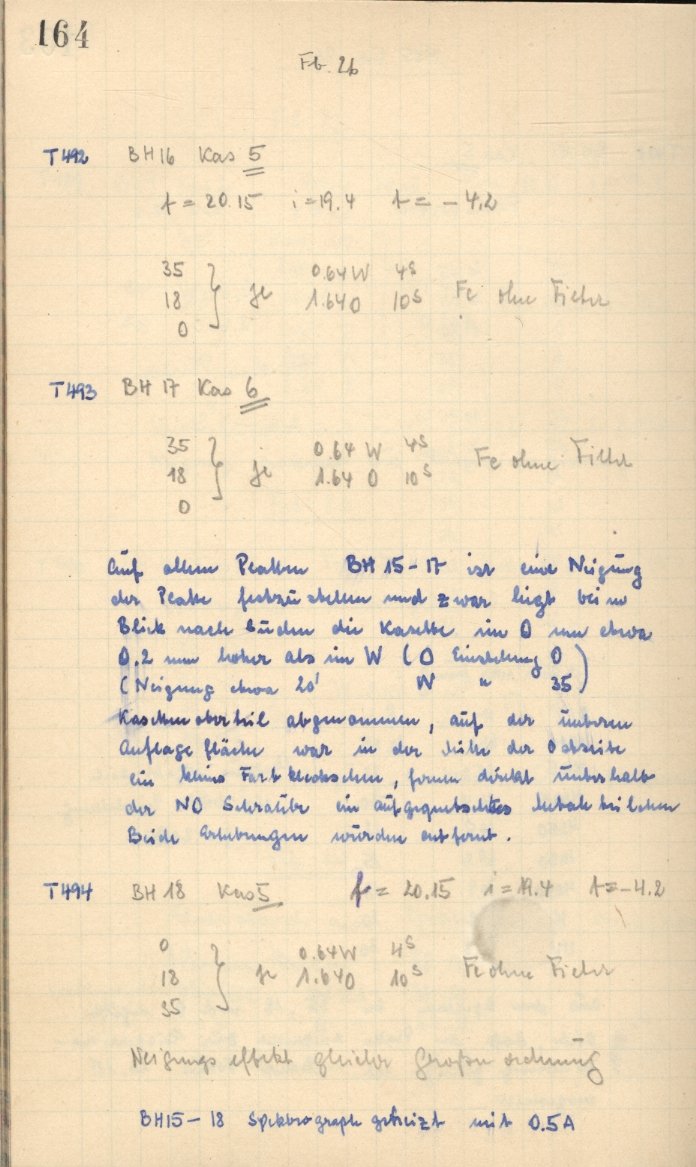 164
Fb. 26
T492 BH16 Kas 5
f = 20.15 i = 19.4 t = - 4.2
35
18 } je 0.64 W 4s
0 1.64 O 10s Fe ohne Filter
T493 BH 17 Kas 6
35
18 } je 0.64 W 4s
0 1.64 O 10s Fe ohne Filter
Auf allen Platten BH 15-17 ist eine Neigung
der Platte festzustellen und zwar liegt beim
Blick nach Süden die Kasette im O um etwa
0.2 mm höher als im W ( O Einstellung 0
( Neigung etwa 20' W " 35 )
Kassettenoberteil abgenommen, auf der unteren
Auflagefläche war in der Mitte der Ostseite
ein kleines Farbkleckschen, ferner direkt unterhalb
der NO Schraube ein aufgequetschtes Metallteilchen
Beide Erhebungen wurden entfernt.
T494 BH 18 Kas 5 f = 20.15 i = 19.4 t = -4.2
0
18 } je 0.64 W 4s
35 1.64 O 10s Fe ohne Filter
Neigungseffekt gleicher Größenordnung
BH15-18 Spektrograph geheizt mit 0.5A